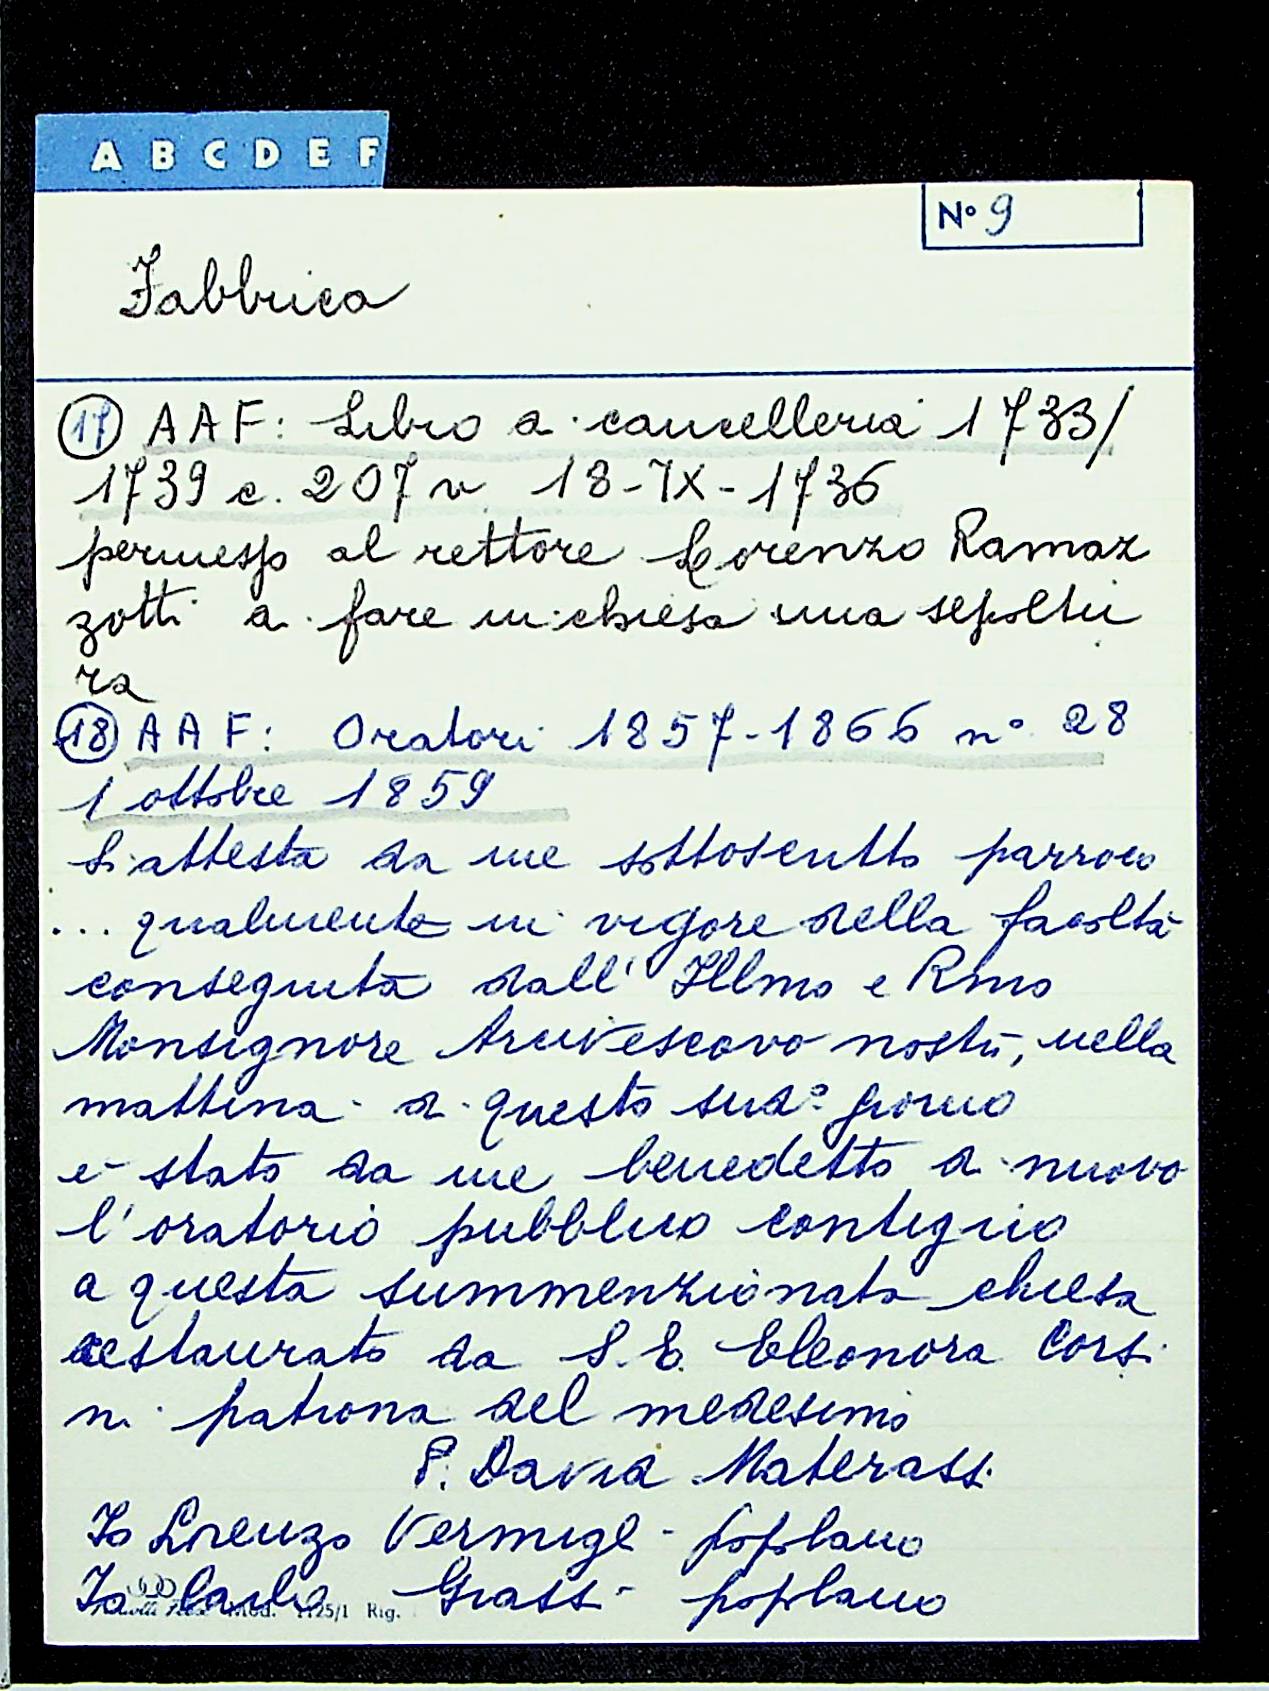 A B C D E F
N° 9
Fabbrica
17 AAF: Libro di cancelleria 1733/
1739 c. 207 v 18-IX-1736
permesso al rettore Lorenzo Ramaz
zotti di fare in chiesa una sepoltu
ra
18 AAF: Oratori 1857-1866 n° 28
1 ottobre 1859
Si attesta da me sottoscritto parroco
... qualmente in vigore della facoltà
conseguita dall' Illmo e Rmo
Monsignore Arcivescovo nostro, nella
mattina di questo sud° giorno
è stato da me benedetto di nuovo
l'oratorio pubblico contiguo
a questa summenzionata chiesa
restaurato da S. E. Eleonora Corsi
ni patrona del medesimo
P. David Materassi
Io Lorenzo Vermigli popolano
Io Carlo Grassi popolano
Mod. 1125/1 Rig.